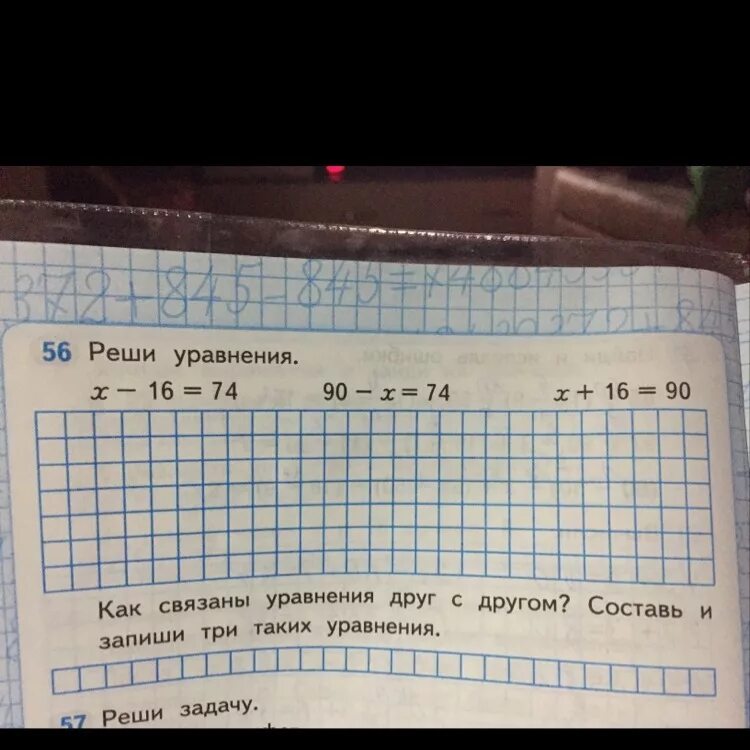 372+845-845=
56 Реши уравнения.
x − 16 = 74 90 − x = 74 x + 16 = 90
Как связаны уравнения друг с другом? Составь и
запиши три таких уравнения.
57 Реши задачу.